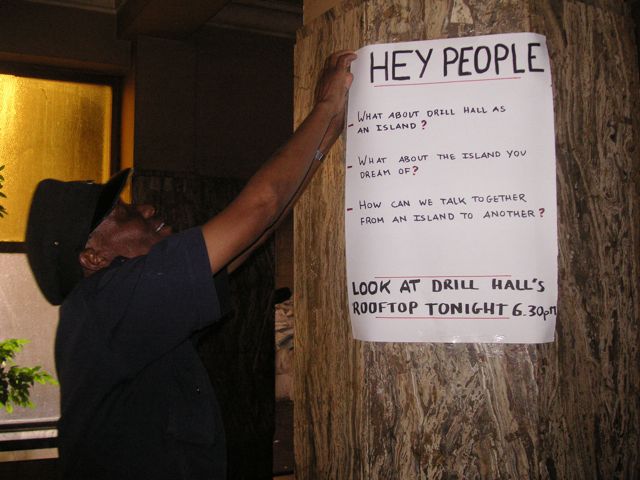 HEY PEOPLE
- WHAT ABOUT DRILL HALL AS
AN ISLAND?
- WHAT ABOUT THE ISLAND YOU
DREAM OF?
- HOW CAN WE TALK TOGETHER
FROM AN ISLAND TO ANOTHER?
LOOK AT DRILL HALL'S
ROOFTOP TONIGHT 6.30pm